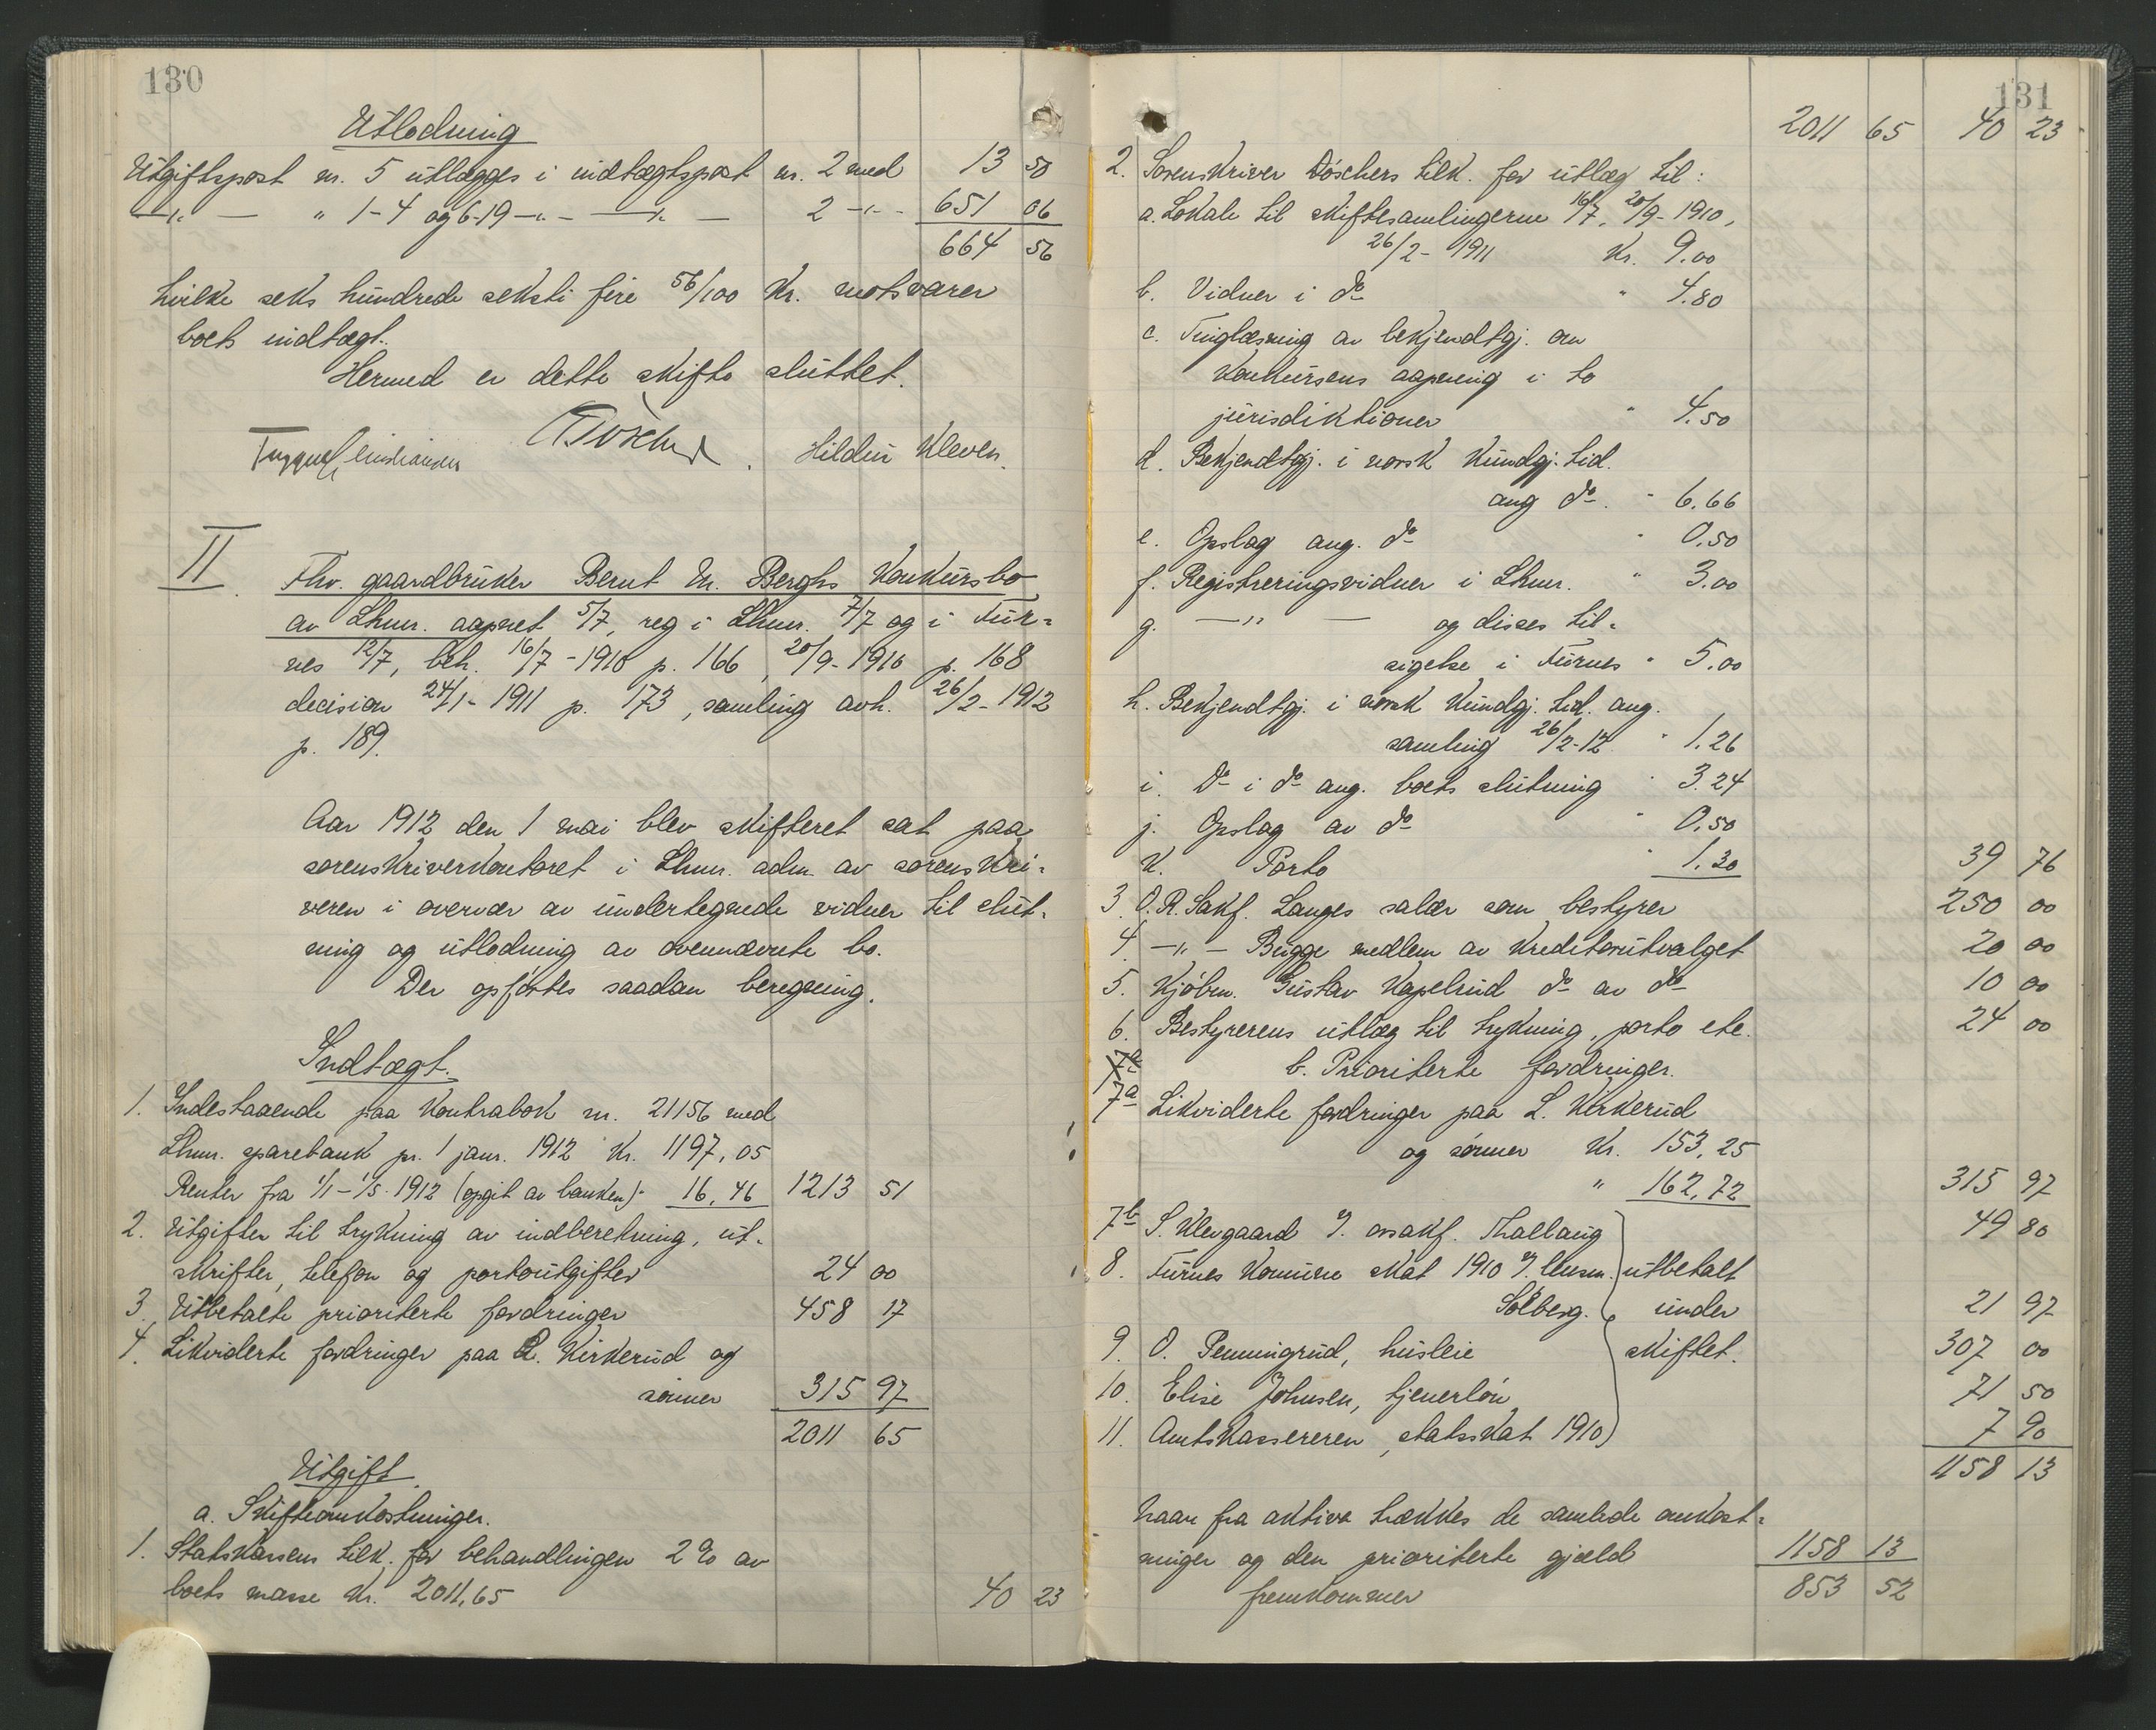 130
Utlodning
Utgiftspost nr. 5 utlægges i indtægtspost nr. 2 med 13 50
—"— " 1-4 og 6-19 —"— —"— 2 —"— 651 06
664 56
hvilke seks hundrede seksti fire 56/100 kr. motsvarer
boets indtægt.
Hermed er dette skifte sluttet.
Tøscher. Hildur Kleven.
II. Fhv. gaardbruker Bernt M. Berghs konkursbo
av Lhmr. aapnet 5/7, reg i Lhmr. 7/7 og i Fur-
nes 12/7, beh. 16/7-1910 p. 166, 20/9-1910 p. 168
decision 24/1-1911 p. 173, samling avh. 26/2-1912
p. 189.
Aar 1912 den 1 mai blev skifteret sat paa
sorenskriverkontoret i Lhmr. adm. av sorenskri-
veren i overvær av undertegnede vidner til slut-
ning og utlodning av ovennævnte bo.
Der opførtes saadan beregning.
Indtægt.
1. Indestaaende paa kontrabok nr. 21156 med
Lhmr. sparebank pr. 1 janr. 1912 kr. 1197,05
Renter fra 1/1-1/5-1912 (opgit av banken) " 16,46 1213 51
2. Utgifter til trykning av indberetning, ut-
skrifter, telefon og portoutgifter 24 00
3. Utbetalte prioriterte fordringer 458 17
4. Likviderte fordringer paa L. Kirkerud og
sønner 315 97
2011 65
Utgift.
a. Skifteomkostninger.
1. Statskassens tilk. for behandlingen 2% av
boets masse kr. 2011,65 40 23
131
2011 65 40 23
2. Sorenskriver Tøschers tilk. for utlæg til:
a. Lokale til skiftesamlingerne 16/7, 20/9-1910,
26/2-1911 kr. 9.00
b. Vidner i do " 4.80
c. Tinglæsning av bekjendtgj. om
konkursens aapning i to
jurisdiktioner " 4.50
d. Bekjendtgj. i norsk kundgj. tid.
ang do. " 6.66
e. Opslag ang. do " 0.50
f. Registreringsvidner i Lhmr. " 3.00
g. —"— og disses til-
sigelse i Furnes " 5.00
h. Bekjendtgj. i norsk kundgj. tid. ang.
samling 26/2-12 " 1.26
i. Do i do ang. boets slutning " 3.24
j. Opslag av do " 0.50
k. Porto " 1.30 39 76
3. O.R.Sakf. Langes salær som bestyrer 250 00
4. —"— Bugge medlem av kreditorutvalget 20 00
5. Kjøbm. Gustav Kapelrud do av do 10 00
6. Bestyrerens utlæg til trykning, porto etc. 24 00
7a b. Prioriterte fordringer.
7a Likviderte fordringer paa L. Kirkerud
og sønner kr. 153,25
" 162,72 315 97
7b S. Klevgaard v. orsakf. Thallaug 49 80
8. Furnes komune skat 1910 v. lensm. utbetalt
Solberg. under 21 97
9. O. Penningrud, husleie skiftet. 307 00
10. Elise Johnsen, tjenerløn 71 50
11. Amtskassereren, statsskat 1910 7 90
1158 13
Naar fra aktiva trækkes de samlede omkost-
ninger og den prioriterte gjæld 1158 13
fremkommer 853 52